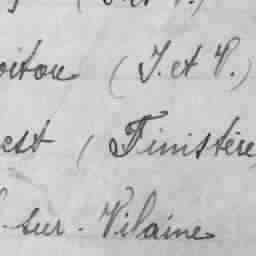 oitou (I. et V.)
est (Finistère
-sur-Vilaine